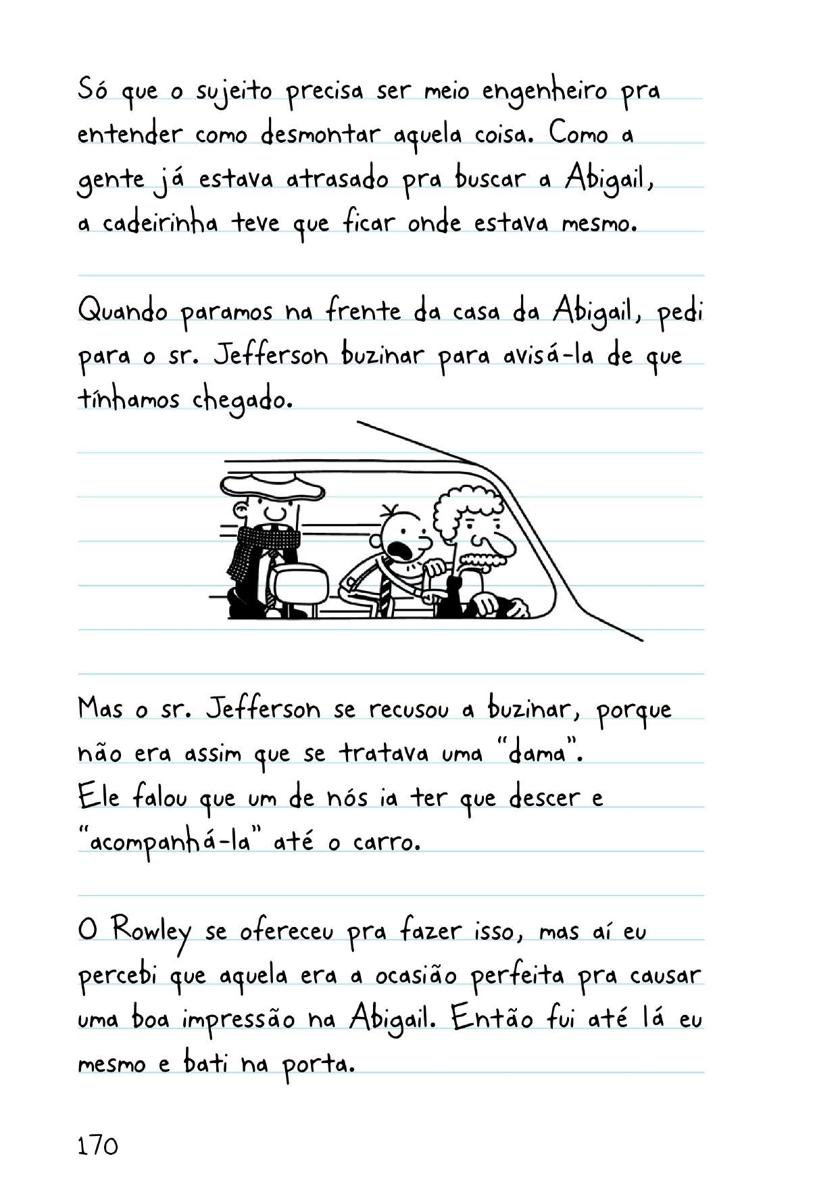 Só que o sujeito precisa ser meio engenheiro pra
entender como desmontar aquela coisa. Como a
gente já estava atrasado pra buscar a Abigail,
a cadeirinha teve que ficar onde estava mesmo.
Quando paramos na frente da casa da Abigail, pedi
para o sr. Jefferson buzinar para avisá-la de que
tínhamos chegado.
Mas o sr. Jefferson se recusou a buzinar, porque
não era assim que se tratava uma “dama”.
Ele falou que um de nós ia ter que descer e
“acompanhá-la” até o carro.
O Rowley se ofereceu pra fazer isso, mas aí eu
percebi que aquela era a ocasião perfeita pra causar
uma boa impressão na Abigail. Então fui até lá eu
mesmo e bati na porta.
170